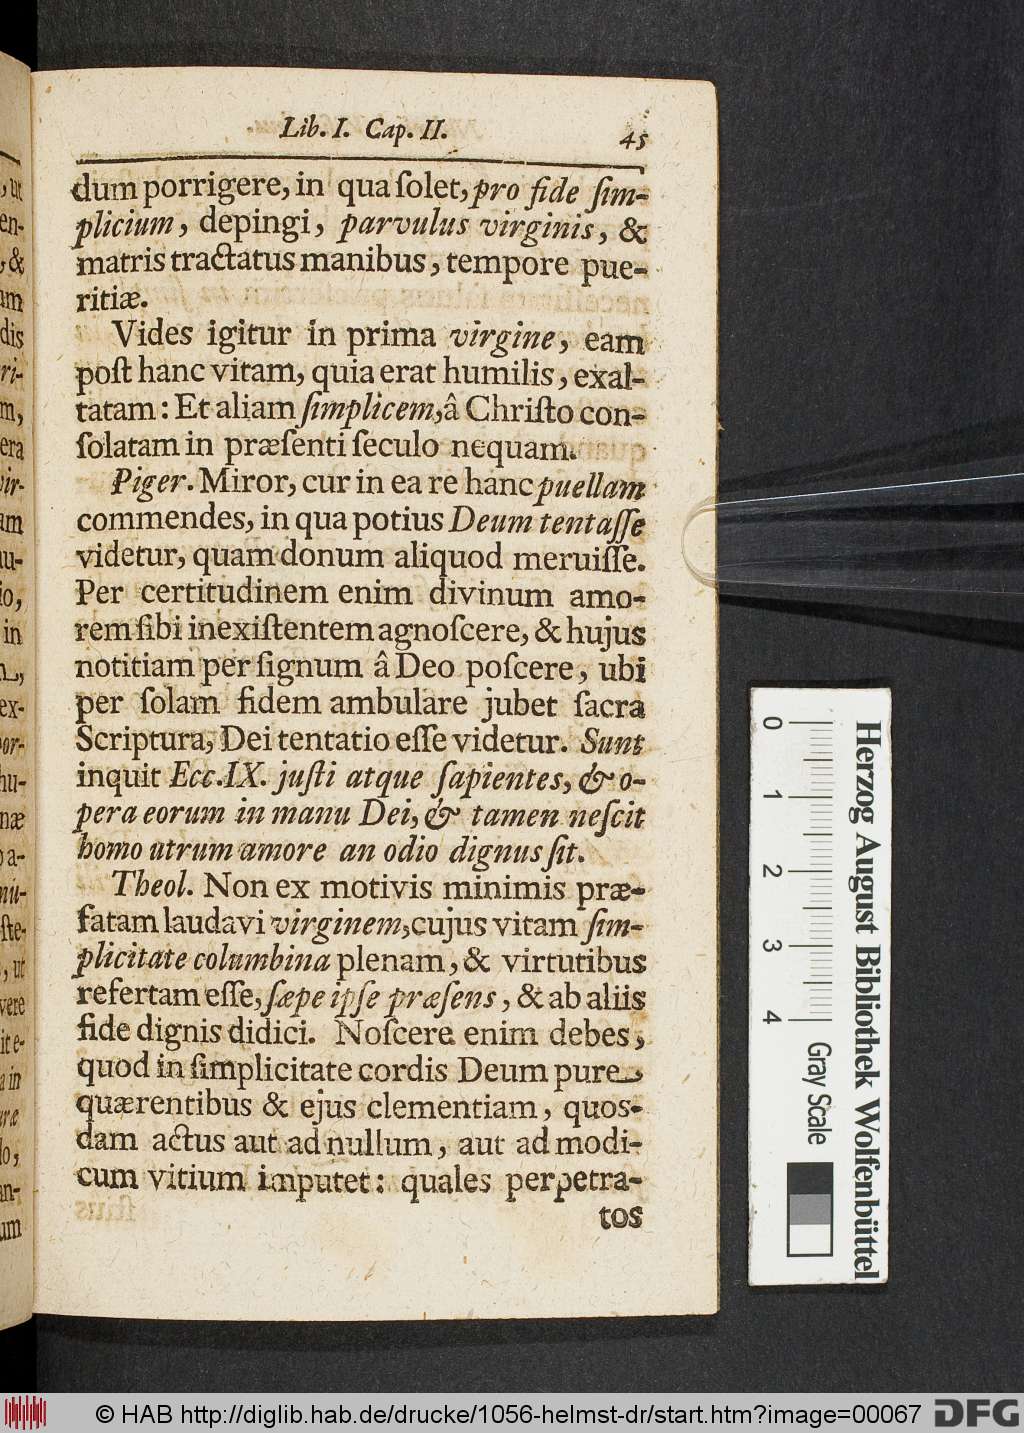 Lib. I. Cap. II. 45
dum porrigere, in qua ſolet, pro fide ſim-
plicium, depingi, parvulus virginis, &
matris tractatus manibus, tempore pue-
ritiæ.
Vides igitur in prima virgine, eam
poſt hanc vitam, quia erat humilis, exal-
tatam: Et aliam ſimplicem, â Chriſto con-
ſolatam in præſenti ſeculo nequam.
Piger. Miror, cur in ea re hanc puellam
commendes, in qua potius Deum tentaſſe
videtur, quam donum aliquod meruiſſe.
Per certitudinem enim divinum amo-
rem ſibi inexiſtentem agnoſcere, & hujus
notitiam per ſignum â Deo poſcere, ubi
per ſolam fidem ambulare jubet ſacra
Scriptura, Dei tentatio eſſe videtur. Sunt
inquit Ecc. IX. juſti atque ſapientes, & o-
pera eorum in manu Dei, & tamen neſcit
homo utrum amore an odio dignus ſit.
Theol. Non ex motivis minimis præ-
fatam laudavi virginem, cujus vitam ſim-
plicitate columbina plenam, & virtutibus
refertam eſſe, ſæpe ipſe præſens, & ab aliis
fide dignis didici. Noſcere enim debes,
quod in ſimplicitate cordis Deum pure
quærentibus & ejus clementiam, quos-
dam actus aut ad nullum, aut ad modi-
cum vitium imputet: quales perpetra-
tos
0 1 2 3 4
Gray Scale
Herzog August Bibliothek Wolfenbüttel
© HAB http://diglib.hab.de/drucke/1056-helmst-dr/start.htm?image=00067
DFG